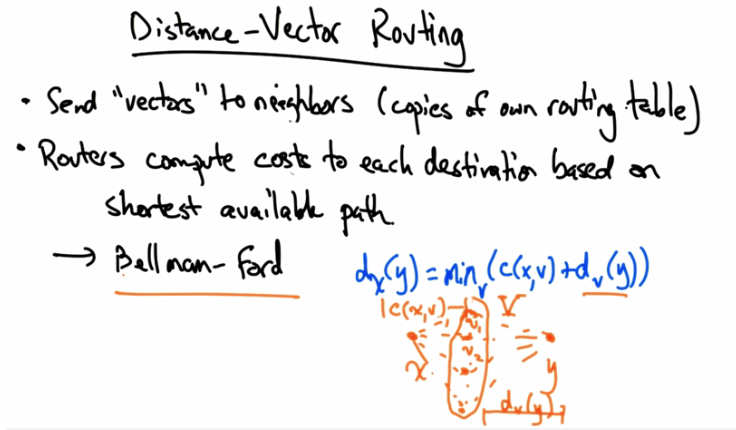 Distance-Vector Routing
• Send "vectors" to neighbors (copies of own routing table)
• Routers compute costs to each destination based on
shortest available path
→ Bellman-Ford
dₓ(y) = minᵥ(c(x,v)+dᵥ(y))
c(x,v)
V
v₁
v₂
x
y
dᵥ(y)